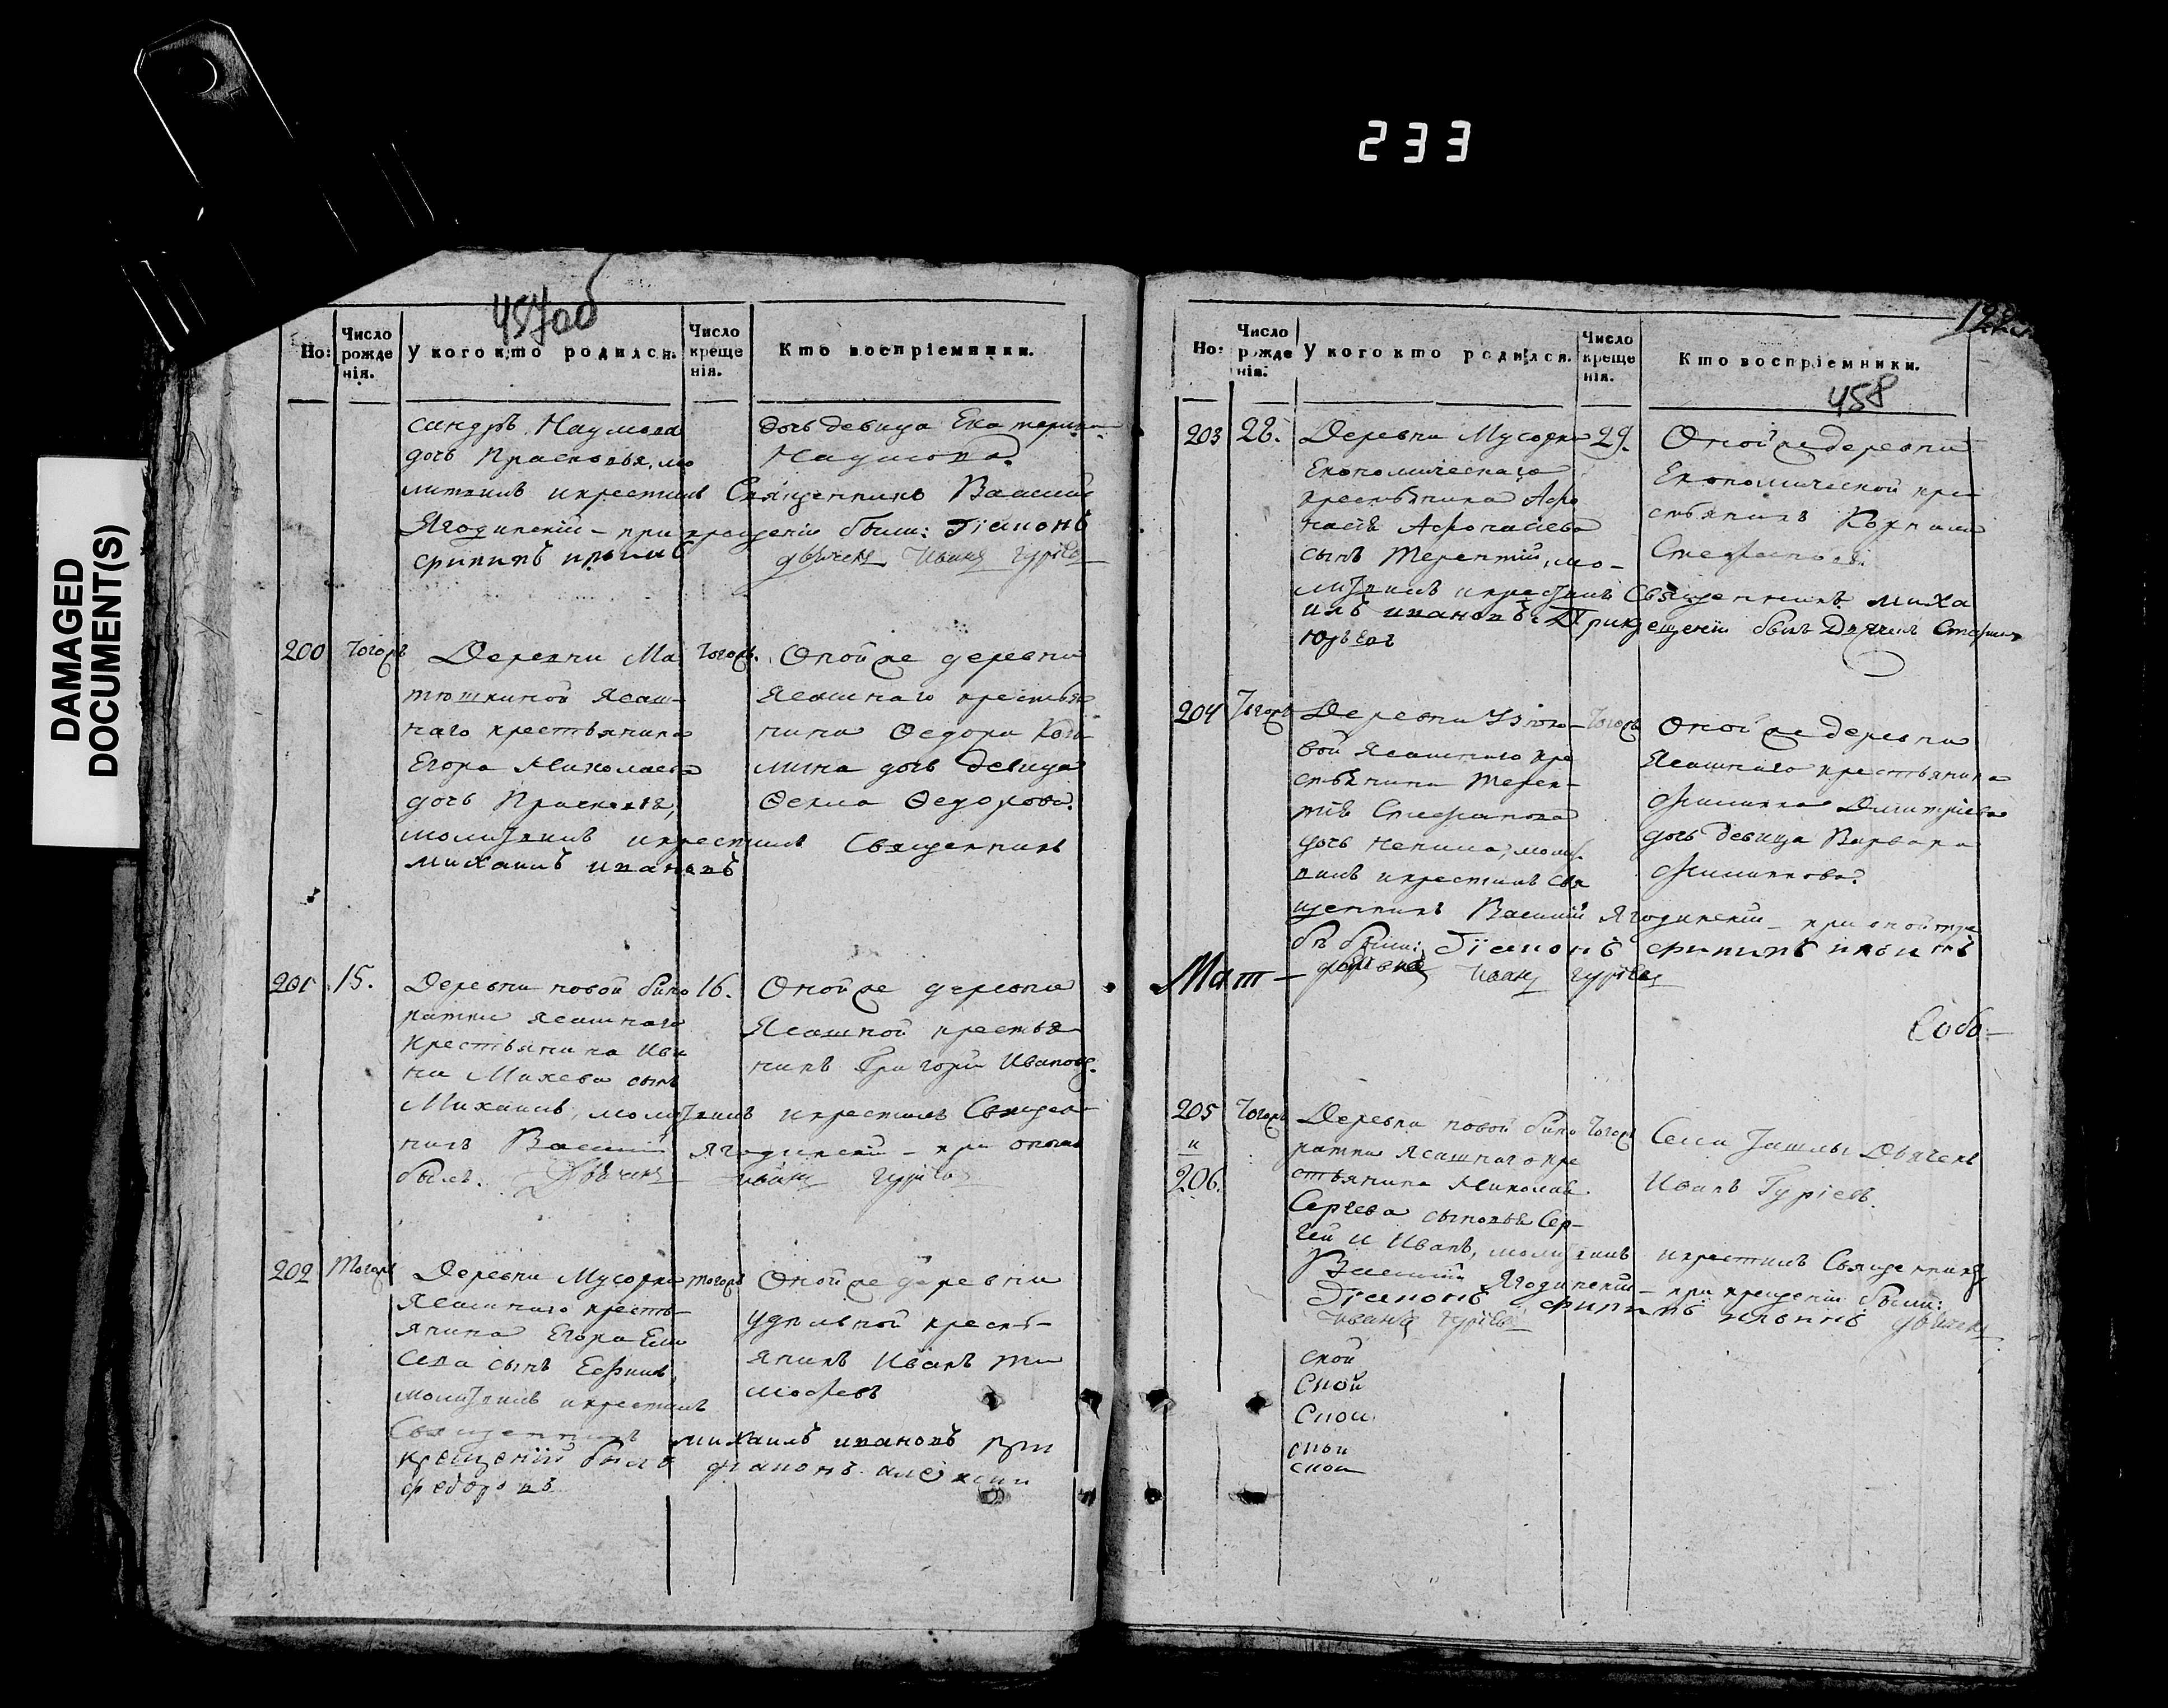 233
DAMAGED
DOCUMENT(S)
457об
Но:
Число рожденія.
У кого кто родился.
Число крещенія.
Кто воспріемники.
сандръ Наумова
дочь Прасковья, мо
литвилъ и крестилъ Священникъ Василий
Ягодинскій – при крещеніи были: Діяконъ
филипъ ильинъ дьячекъ Иванъ Гурьевъ
дочь девица Екатерина
Наумова.
200
Тогожъ
Деревни Ма
тюшкиной Ясаш-
наго крестьянина
Егора Николаева
дочь Прасковья,
молитвилъ и крестилъ Священникъ
михаилъ ивановъ
Тогожъ.
Оной же деревни
Ясашнаго крестья
нина Федора
мина дочь девица
Фекла Федорова.
201
15.
Деревни новой бина
ратки ясашнаго
крестьянина Ива
на Михева сынъ
Михаилъ, молитвилъ и крестилъ Священ-
никъ Василий Ягодинский – при
былъ. Дьячекъ Иванъ Гурьевъ
16.
Оной же деревни
Ясашной крестья
нинъ Григорій Ивановъ.
202
Тогожъ
Деревни Мусорки
Ясашнаго кресть-
янина Егора Ели
сева сынъ Ефимъ,
молитвилъ и крестилъ
Священникъ михаилъ ивановъ при
крещеніи былъ диаконъ алексий
федоровъ
тогожъ
Оной же деревни
удельной кресть-
янинъ Иванъ Ти
мофевъ
458
Но:
Число рожденія.
У кого кто родился.
Число крещенія.
Кто воспріемники.
203
28.
Деревни Мусорки
Економическаго
крестьянина Афо
насія Афонасіева
сынъ Терентій, мо-
литвилъ и крестилъ Священникъ миха
илъ ивановъ При крещеніи былъ Дьячекъ Стефанъ
Юрьевъ
29.
Оной же деревни
Економической кре
стьянинъ Корнили
Стефановъ.
204
Тогожъ
Деревни Узюко-
вой Ясашнаго кре
стьянина Терен-
тія Стефанова
дочь Ненила, молит
вилъ и крестилъ свя
щенникъ Василий Ягодинскій – при оной тре
бѣ были: Діяконъ филипъ ильинъ
Иванъ Гурьевъ
Тогожъ
Оной же деревни
Ясашнаго крестьянина
Филиппа Дмитріева
дочь девица Варвара
Филиппова.
Мат –
Собо–
205
и
206.
Тогожъ
Деревни новой бина
ратки Ясашнаго кре
стьянина Николая
Сергева сыновья Сер-
гей и Иванъ, молитвилъ и крестилъ Священникъ
Василий Ягодинскій – при крещеніи были:
Діяконъ филипъ ильинъ дьячекъ
Иванъ Гурьевъ
Тогожъ
Села Ташлы Дьячекъ
Иванъ Гуріевъ.